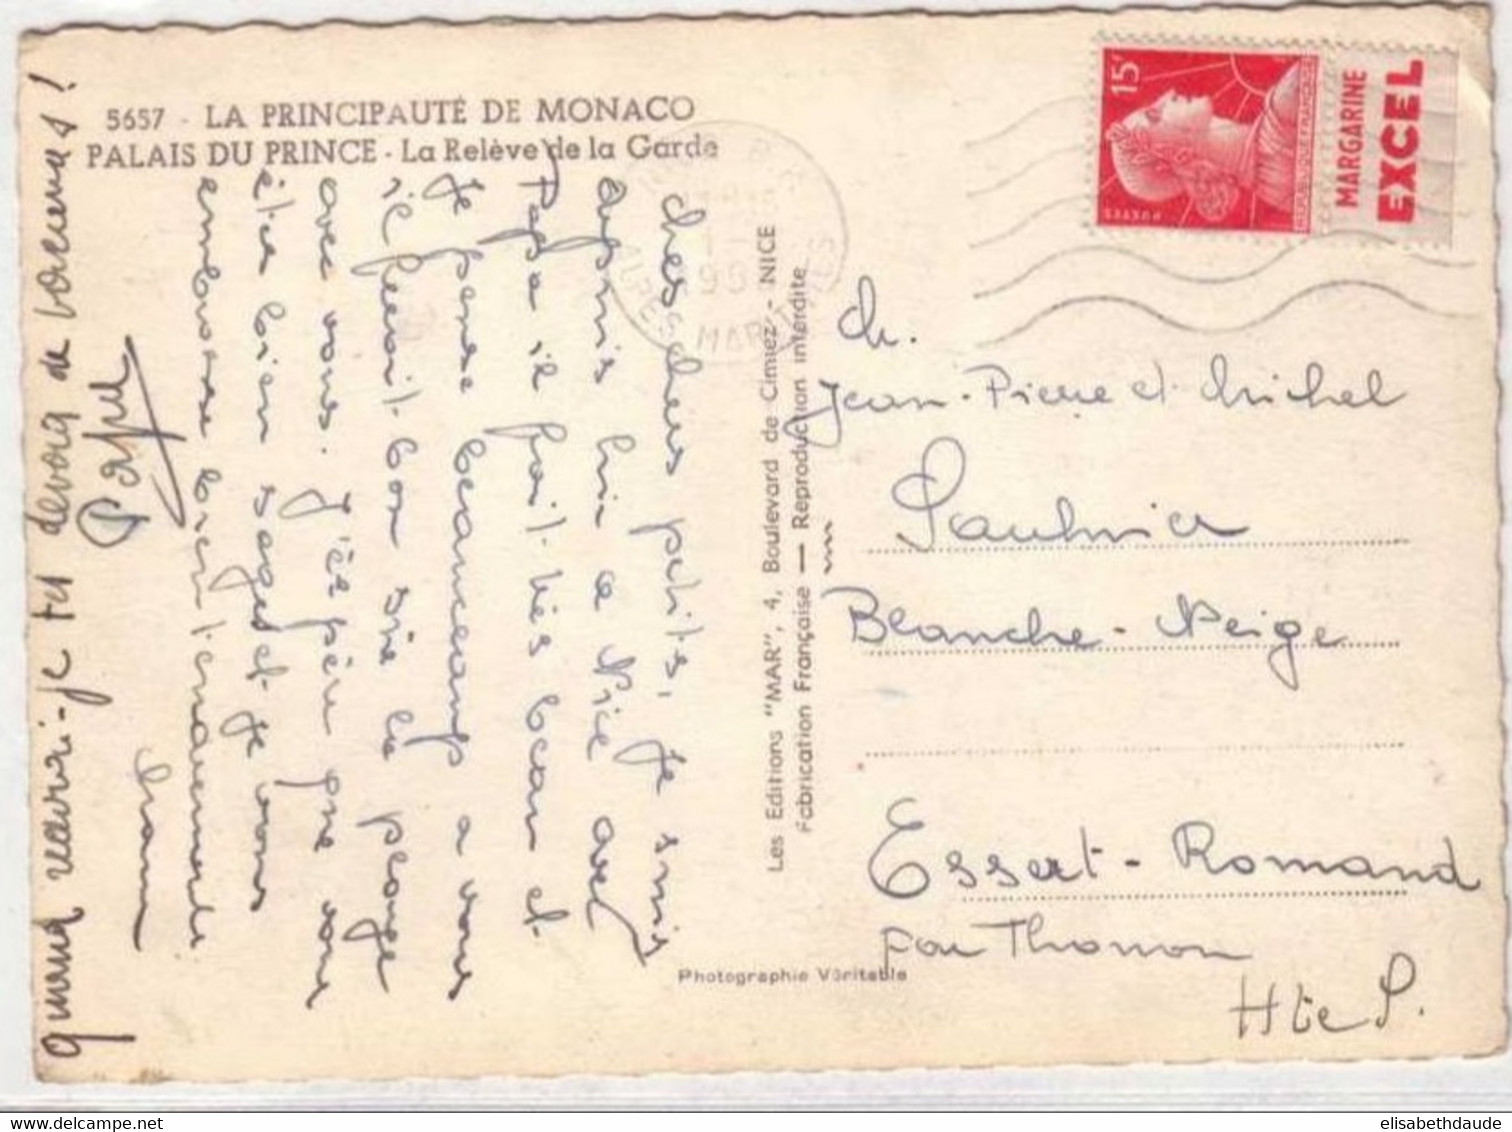 5657 - LA PRINCIPAUTÉ DE MONACO
PALAIS DU PRINCE - La Relève de la Garde
Mes chers petits, je suis
depuis hier a Nice avec
Papa il fait très beau et
je pense beaucoup a vous
il ferait bon sur la plage
avec vous. J'espère que vous
êtes bien sages et je vous
embrasse bien tendrement
Maman
quand aurai-je tu devoir de vacances!
Papa
Les Editions "MAR", 4, Boulevard de Cimiez - NICE
Fabrication Française — Reproduction interdite
Photographie Véritable
ALPES MARITIMES
15F
POSTES
REPUBLIQUE FRANÇAISE
MARGARINE
EXCEL
M.
Jean-Pierre et Michel
Saulnier
Blanche-Neige
Essert-Romand
par Thonon
Hte S.
elisabethdaude